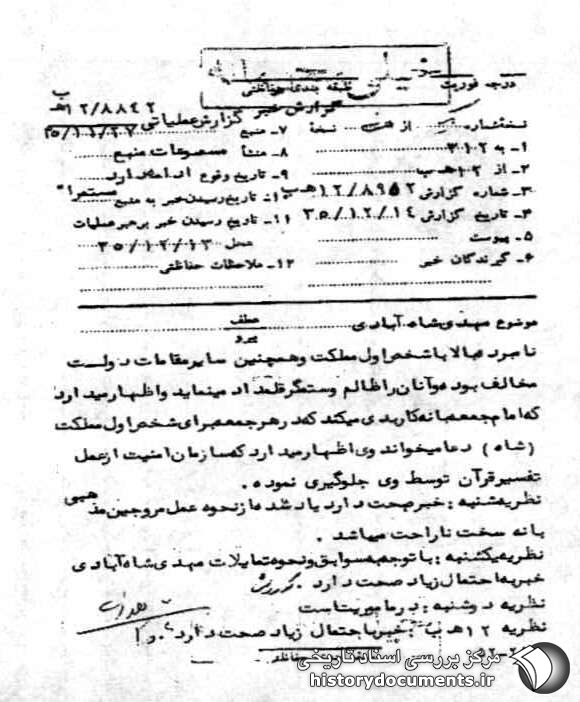 خیلی
طبقه بندی حفاظتی
درجه فوریت
گزارش خبر گزارش عملیاتی
۱۲/۸۸۴۲ ه‍ ب
۳۵/۱۱/۲۷
نسخه شماره از نسخه
۷- منبع
۱- به ۳۱۲
۸- منشأ مسموعات منبع
۲- از ۱۲ ه‍ ب
۹- تاریخ وقوع ادامه دارد
۳- شماره گزارش ۱۲/۸۹۵۲ ه‍ ب
۱۰- تاریخ رسیدن خبر به منبع مستمراً
۴- تاریخ گزارش ۳۵/۱۲/۱۴
۱۱- تاریخ رسیدن خبر برهبر عملیات
محل ۳۵/۱۲/۱۳
۵- پیوست
۶- گیرندگان خبر
۱۲- ملاحظات حفاظتی
موضوع مهدی شاه آبادی
عطف
پیرو
نامبرده بالا با شخص اول مملکت و همچنین سایر مقامات دولت
مخالف بوده و آنان را ظالم و ستمگر قلمداد مینماید و اظهار میدارد
که امام جمعه میانه کار بدی میکند که در هر جمعه برای شخص اول مملکت
(شاه) دعا میخواند وی اظهار میدارد که سازمان امنیت از عمل
تفسیر قرآن توسط وی جلوگیری نموده.
نظریه شنبه : خبر صحت دارد یاد شده از نحوه عمل مروجین مذهبی
میانه سخت ناراحت میباشد .
نظریه یکشنبه : با توجه به سوابق و نحوه تمایلات مهدی شاه آبادی
خبر به احتمال زیاد صحت دارد . کورش
نظریه دوشنبه : در ماموریت است
نظریه ۱۲ ه‍ ب : خبر با احتمال زیاد صحت دارد .
مرکز بررسی اسناد تاریخی
historydocuments.ir